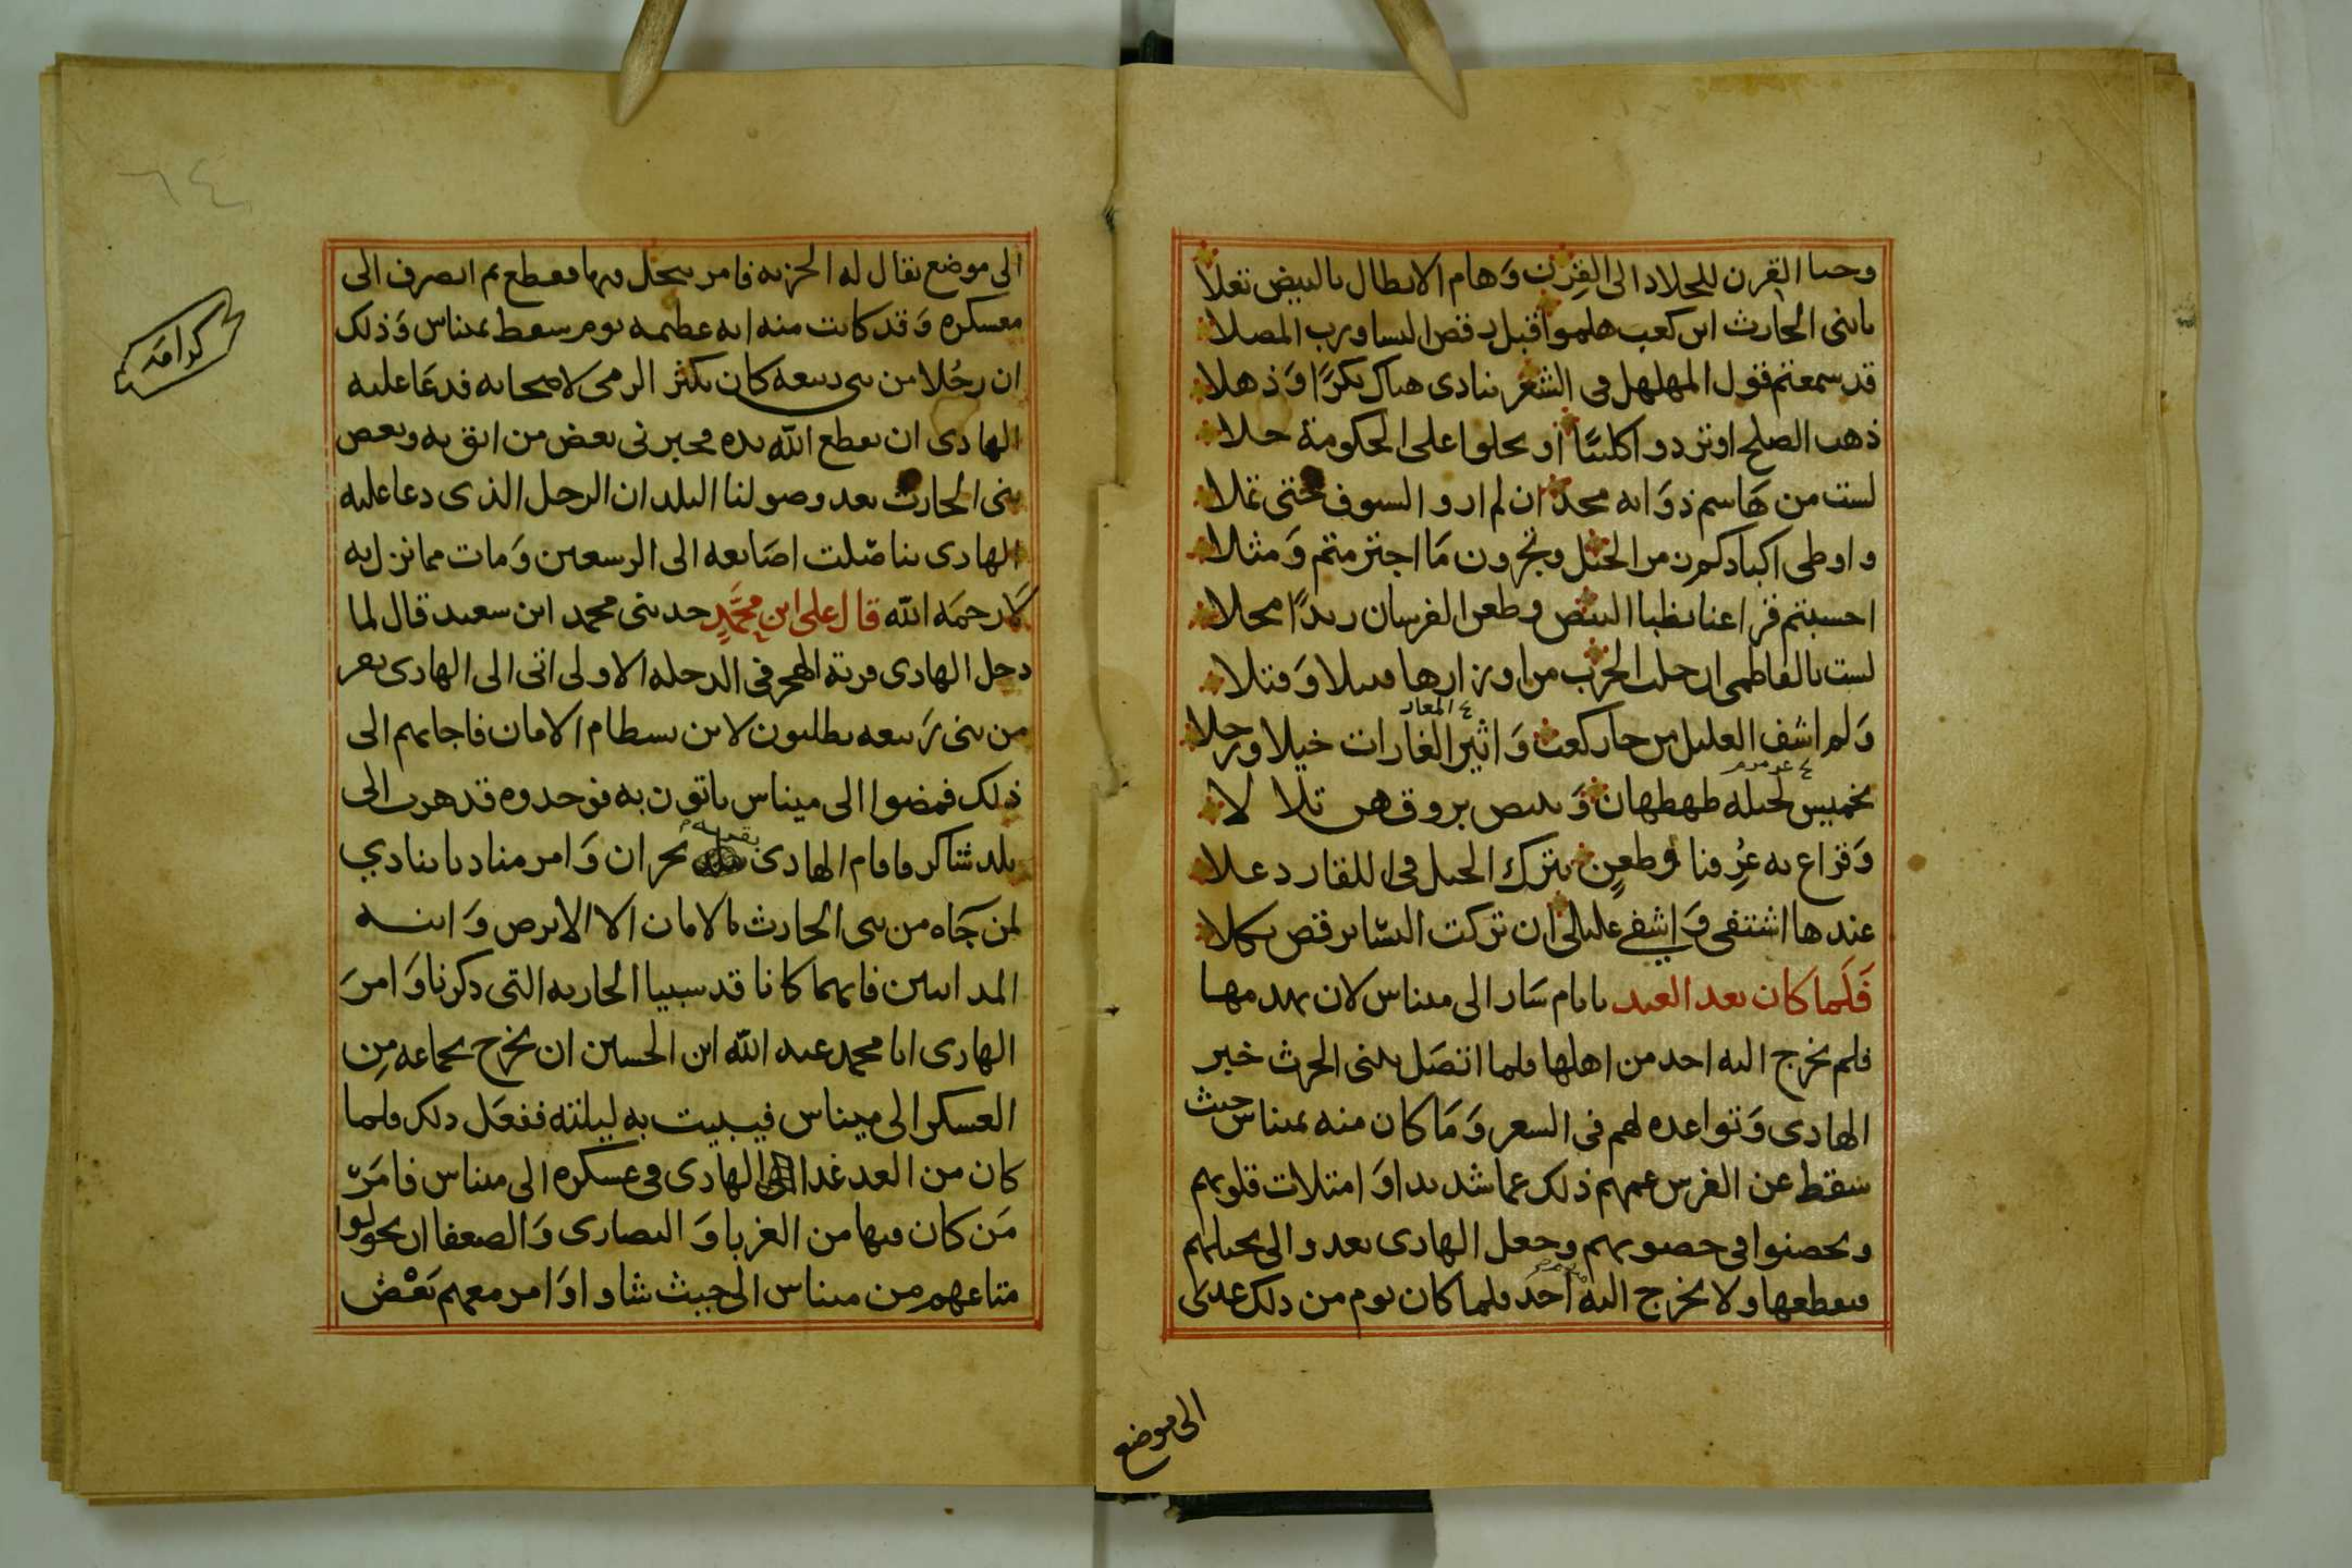 وحىا القرن للجلاد الى القرن وَهام الابطال بالبيض تفلا
يابنى الحارث ابن كعب هلموا قبل رقص النسا ورب المصلا
قد سمعتم قول المهلهل فى الشعر ينادى هناك بكرًا وَذهلا
ذهب الصلح او تردوا كليبًا او يحلوا على الحكومة حلا
لست من هَاشم ذوَابه مجد ان لم ارو السيوف حتى تملا
و اوطى اكبادكم من الخيل وتجزون مَا اجترمتم وَمثلا
احسبتم قراعنا بظبا البيض وطعن الفرسان ريدًا محلا
لست بالفاطمى ان حلت الحرب من اوزارها قبيلا وَقتلا
وَلم اشف الغليل من حار كعب وَاثير الغارات خيلا ورجلا
ع المغار
بخميس لخيله طهطهان وَبيض بروقهن تلا لا
ع عرمرم
وَقراع به عُرِفنا وطعنٍ يترك الخيل فى اللقا ردعلا
عندها اشتفى وَاشفى غليلى ان تركت النسا يرقص ثكلا
فَلَما كان بعد العيد بايام سَار الى ميناس لان يهدمها
فلم يخرج اليه احد من اهلها فلما اتصَل ببنى الحرث خبر
الهادى وَتواعده لهم فى الشعر وَمَا كان منه بميناس حيث
سقط عن الفرس غمهم ذلك غما شديدا وَامتلات قلوبهم
وتحصنوا فى حصونهم وجعل الهادى يغدوا الى نخيلهم
فيقطعها ولا يخرج اليه احد فلما كان يوم من ذلك غدى
منهم
الى موضع
الى موضع يقال له الحزبه فامر بنخل فيها فقطع ثم انصرف الى
معسكره وَقد كانت منه ايه عظيمه يوم سقط بميناس وَذلك
ان رجُلا من بنى ربيعه كان يكثر الرمى لاصحابه فدعَا عليه
الهادى ان يقطع الله يده فخبرنى بعض من اثق به وبعض
بنى الحارث بعد وصولنا البلد ان الرجل الذى دعا عليه
الهادى تناصَلت اصَابعه الى الرسغين وَمات مما نزل به
كَا رحمَه الله قال على ابن محَمَّدٍ حدثنى محمد ابن سعيد قال لما
دخل الهادى قرية الهجر فى الدخله الاولى اتى الى الهادى نفر
من بنى رَبيعه يطلبون لابن بسطام الامان فاجابهم الى
ذلك فمضوا الى ميناس ياتون به فوجدوه قد هرب الى
بلد شاكر فاقام الهادى بقريه نجران وَامر مناديا ينادي
لمن جَاه من بنى الحارث بالامان الا الابرص وَابنه
المدانيين فانهما كانا قد سبيا الجاريه التى ذكرنا وَامرَ
الهادى ابا محمد عبد الله ابن الحسين ان يخرج بجماعه مِن
العسكر الى ميناس فيبيت به ليلته ففعَل ذلك فلما
كان من الغد غدا الهادى فى عسكره الى ميناس فامَر
مَن كان فيها من الغربا وَالنصارى وَالضعفا ان يحولوا
متاعهم من ميناس الى حيث شاوا وَامر معهم بَعْض
كرامَه
٦٤